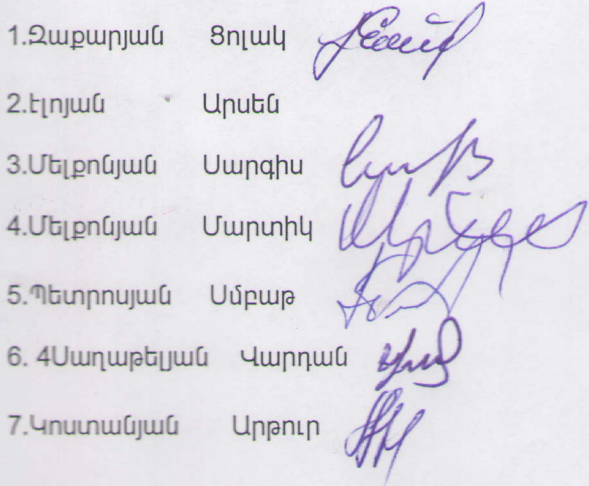 1.Զաքարյան Ցոլակ
2.Էլոյան Արսեն
3.Մելքոնյան Սարգիս
4.Մելքոնյան Մարտիկ
5.Պետրոսյան Սմբաթ
6. 4Սաղաթելյան Վարդան
7.Կոստանյան Արթուր